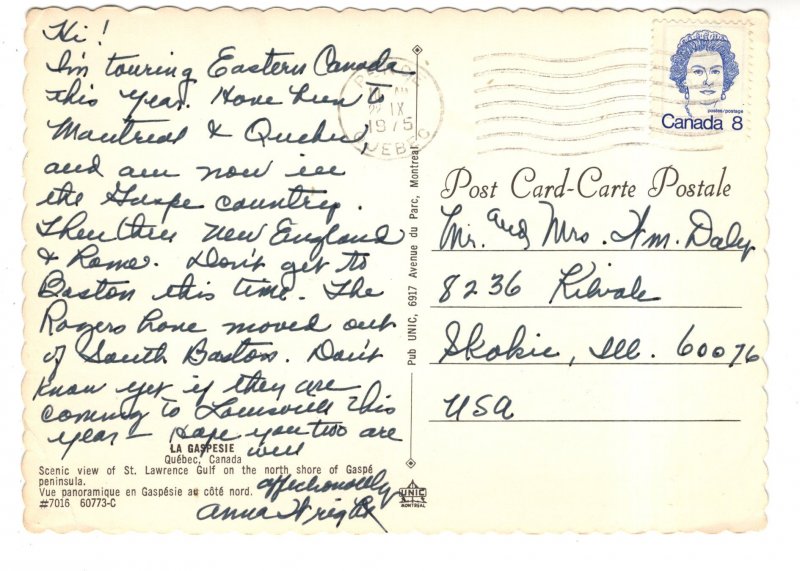 Hi!
I'm touring Eastern Canada
this year. Have been to
Montreal & Quebec
and am now in
the Gaspe country.
Then thru New England
& home. Don't get to
Boston this time. The
Rogers have moved out
of South Boston. Don't
know yet if they are
coming to Louisville this
year - Hope you two are
well
affectionately
Anna Wright
LA GASPESIE
Québec, Canada
Scenic view of St. Lawrence Gulf on the north shore of Gaspé
peninsula.
Vue panoramique en Gaspésie au côté nord.
#7016 60773-C
Pub UNIC, 6917 Avenue du Parc, Montreal
UNIC
MONTREAL
PERCÉ
IX
1975
QUEBEC
postes/postage
Canada 8
Post Card-Carte Postale
Mr. and Mrs. Wm. Daly
8236 Kilvale
Skokie, Ill. 60076
USA